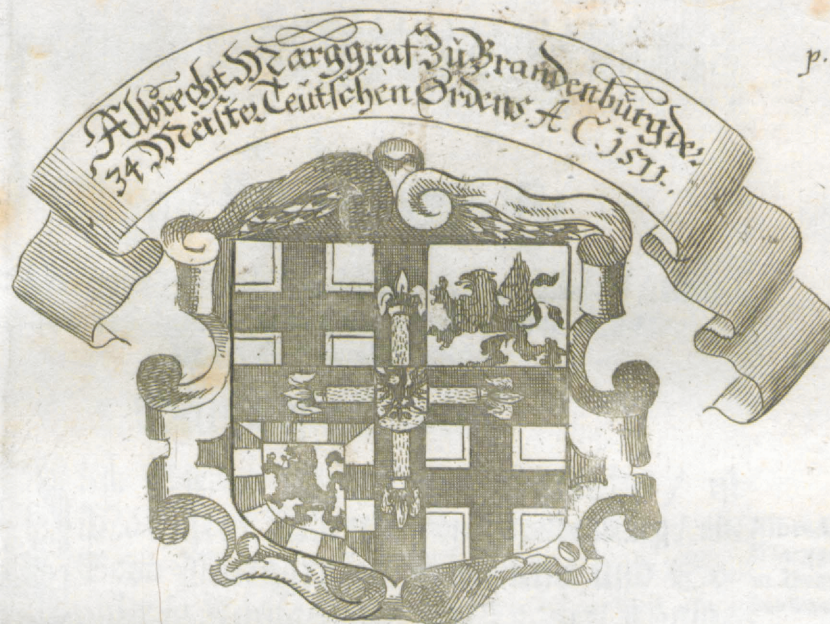 Albrecht Marggraf Zu Brandenburg der
34 Meister Teutschen Ordens A C. 1511.
p.